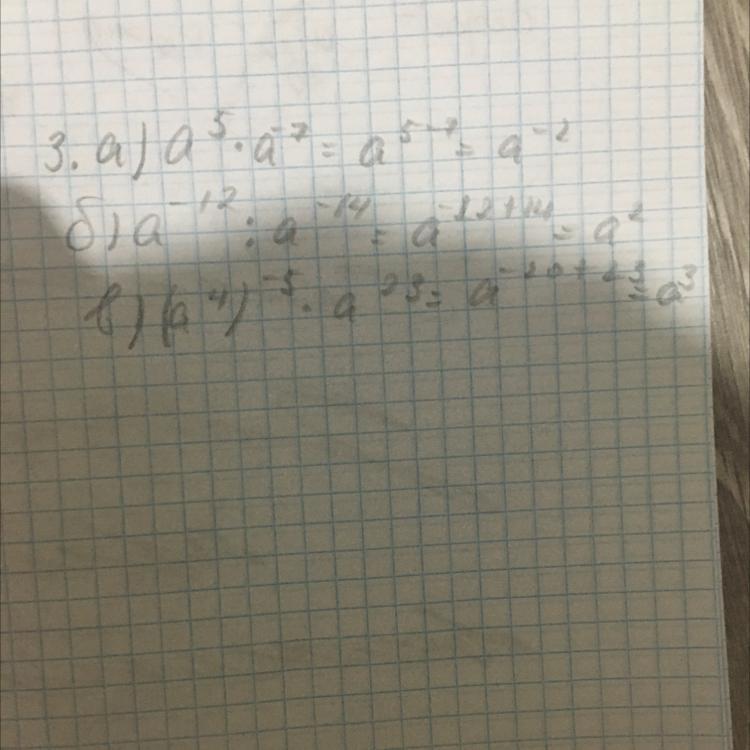 3. а) a⁵ · a⁻⁷ = a⁵⁻⁷ = a⁻²
б) a⁻¹² : a⁻¹⁴ = a⁻¹²⁺¹⁴ = a²
в) (a⁴)⁻⁵ · a²³ = a⁻²⁰⁺²³ = a³